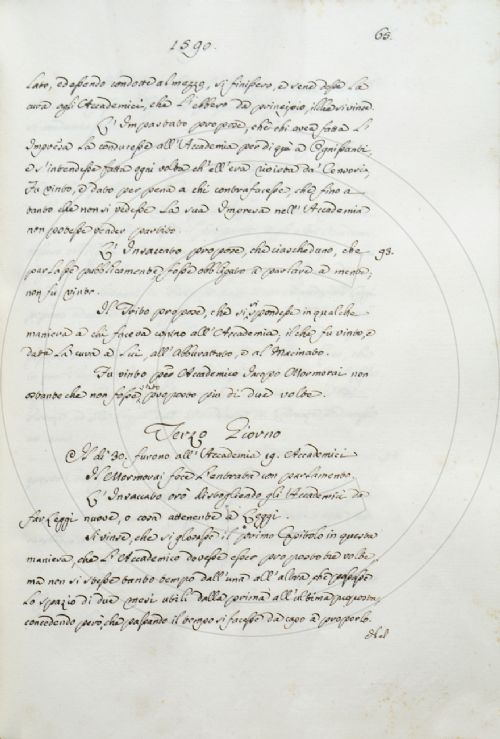 1590.
65.
lato, ed essendo condotte al mezzo, si finissero, e sene desse la
cura agli Accademici, che l'ebbero da principio, il che si vinse.
L'Impastato propose, che chi avea fatta l'
Impresa la conducesse all'Accademia per di quì a Ognissanti,
e s'intendesse fatta ogni volta ch'ell'era vista da' Censori,
fu vinto, e dato per pena a chi contrafacesse che fino a
tanto che non si vedesse la sua Impresa nell'Accademia
non potesse render partito.
L'Insaccato propose, che ciascheduno, che
93.
parlasse pubblicamente fosse obbligato a parlare a mente,
non fu vinto.
Il Trito propose, che si rispondesse in qualche
maniera a chi faceva contro all'Accademia, il che fu vinto, e
data la cura a lui, all'Abburattato, e al Macinato.
Fu vinto per Accademico Iacopo Mormorai non
ostante che non fosse stato proposto più di due volte.
Terzo Giorno
A dì 30. furono all'Accademia 19. Accademici
Il Mormorai fece l'entrata con parlamento.
L'Insaccato orò distogliendo gli Accademici da
far Leggi nuove, o cosa attenente a Leggi.
Si vinse, che si glosasse il primo Capitolo in questa
maniera, che l'Accademico dovesse esser proposto tre volte,
ma non si stesse tanto tempo dall'una all'altra, che passasse
lo spazio di due mesi utili dalla prima all'ultima proposta
concedendo però, che passando il tempo si facesse da capo a proporlo.